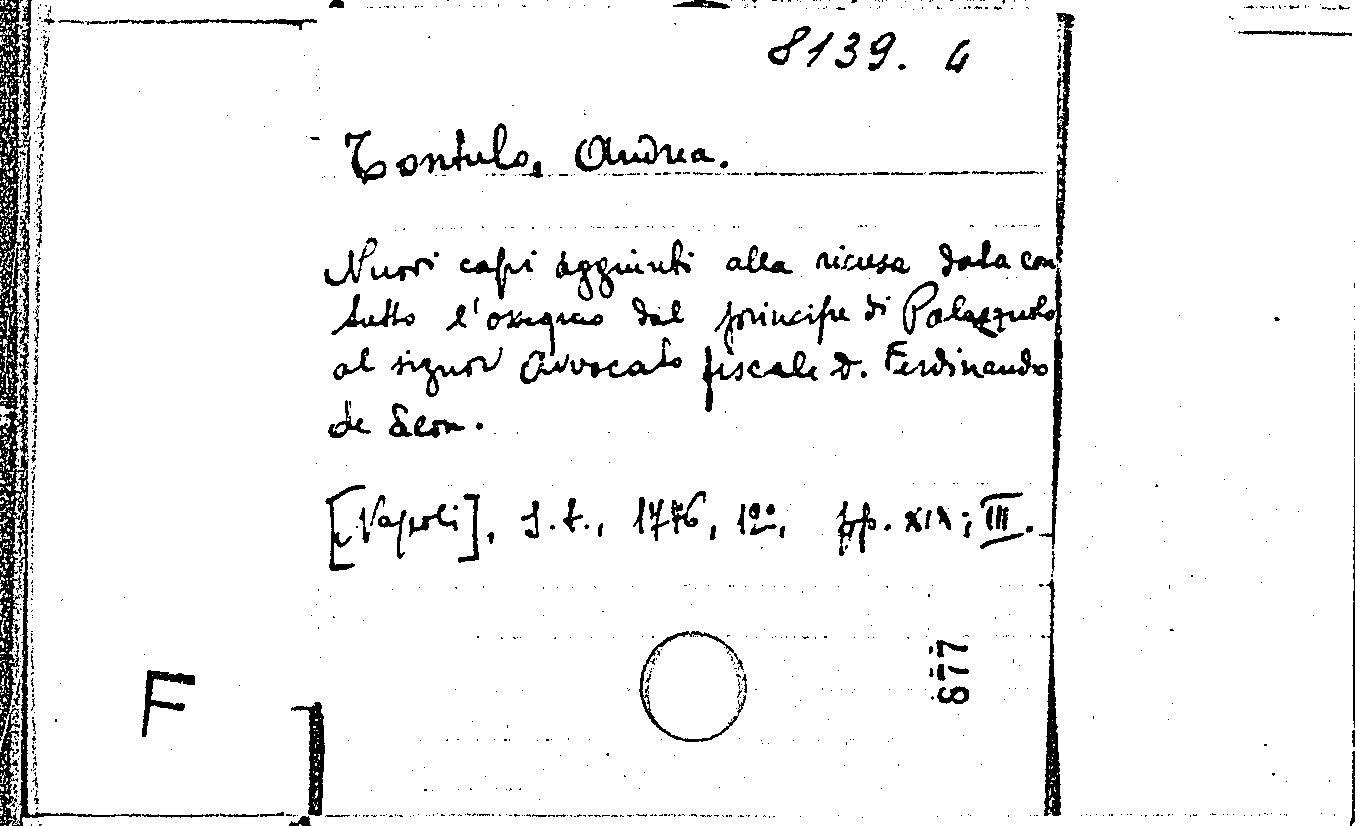 8139. 4
Tontulo, Andrea.
Nuovi capi aggiunti alla ricusa data con
tutto l'ossequio dal principe di Palazzuolo
al signor Avvocato fiscale D. Ferdinando
de Leon.
[Napoli], s.t., 1776, 12°, pp. XIX; III.
677
F